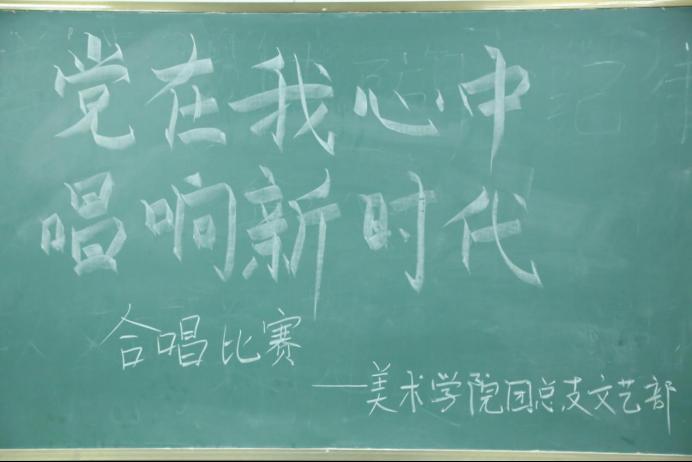 党在我心中
唱响新时代
合唱比赛
——美术学院团总支文艺部